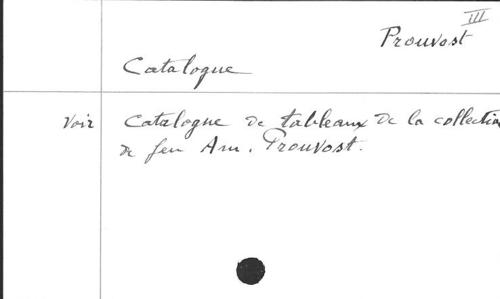 III
Prouvost
Catalogue
Voir Catalogue de tableaux de la collection
de feu Am. Prouvost.